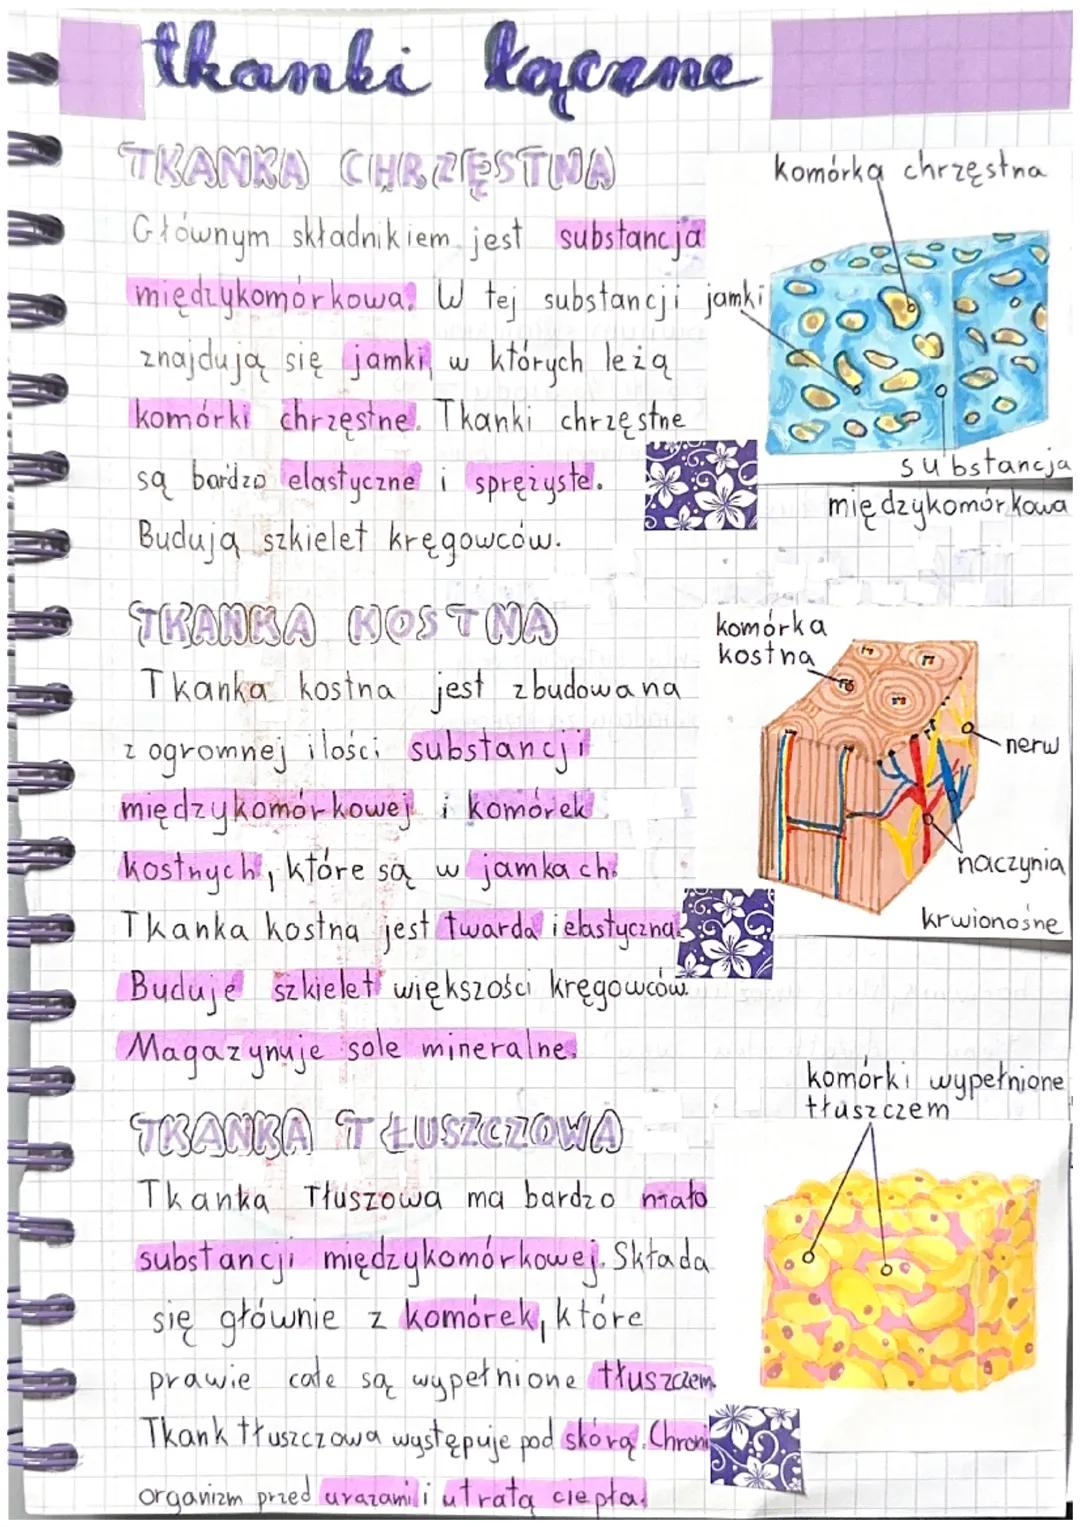 tkanki łączne
TKANKA CHRZĘSTNA
Głównym składnikiem jest substancja
międzykomórkowa. W tej substancji
znajdują się jamki, w których leżą
komórki chrzęstne. Tkanki chrzęstne
są bardzo elastyczne i sprężyste.
Budują szkielet kręgowców.
komórka chrzęstna
jamki
substancja
międzykomórkowa
TKANKA KOSTNA
Tkanka kostna jest zbudowana
z ogromnej ilości substancji
międzykomórkowej i komórek
kostnych, które są w jamkach.
Tkanka kostna jest twarda i elastyczna.
Buduje szkielet większości kręgowców.
Magazynuje sole mineralne.
komórka
kostna
nerw
naczynia
krwionośne
TKANKA TŁUSZCZOWA
Tkanka Tłuszowa ma bardzo mało
substancji międzykomórkowej. Składa
się głównie z komórek, które
prawie całe są wypełnione tłuszczem.
Tkank tłuszczowa występuje pod skórą. Chroni
organizm przed urazami i utratą ciepła.
komórki wypełnione
tłuszczem